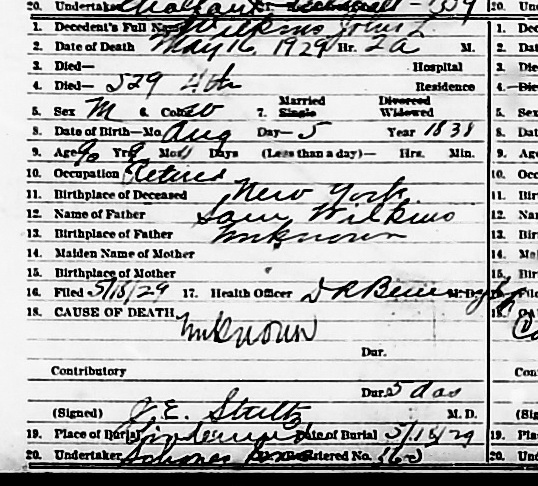 20. Undertaker
1. Decedent's Full Name Wilkins John L
2. Date of Death May 16, 1929 Hr. 2 a M.
3. Died— Hospital
4. Died— 529 4th Residence
5. Sex M 6. Color W 7. Married Single Divorced Widowed
8. Date of Birth—Mo. Aug Day— 5 Year 1838
9. Age 90 Yrs 9 Mos 11 Days (Less than a day)— Hrs. Min.
10. Occupation Retired
11. Birthplace of Deceased New York
12. Name of Father Sam Wilkins
13. Birthplace of Father Unknown
14. Maiden Name of Mother
15. Birthplace of Mother
16. Filed 5/18/29 17. Health Officer D R M.D.
18. CAUSE OF DEATH Unknown
Dur.
Contributory
Dur. 5 das
(Signed) J. E. Stultz M. D.
19. Place of Burial Date of Burial 5/18/29
20. Undertaker Registered No.